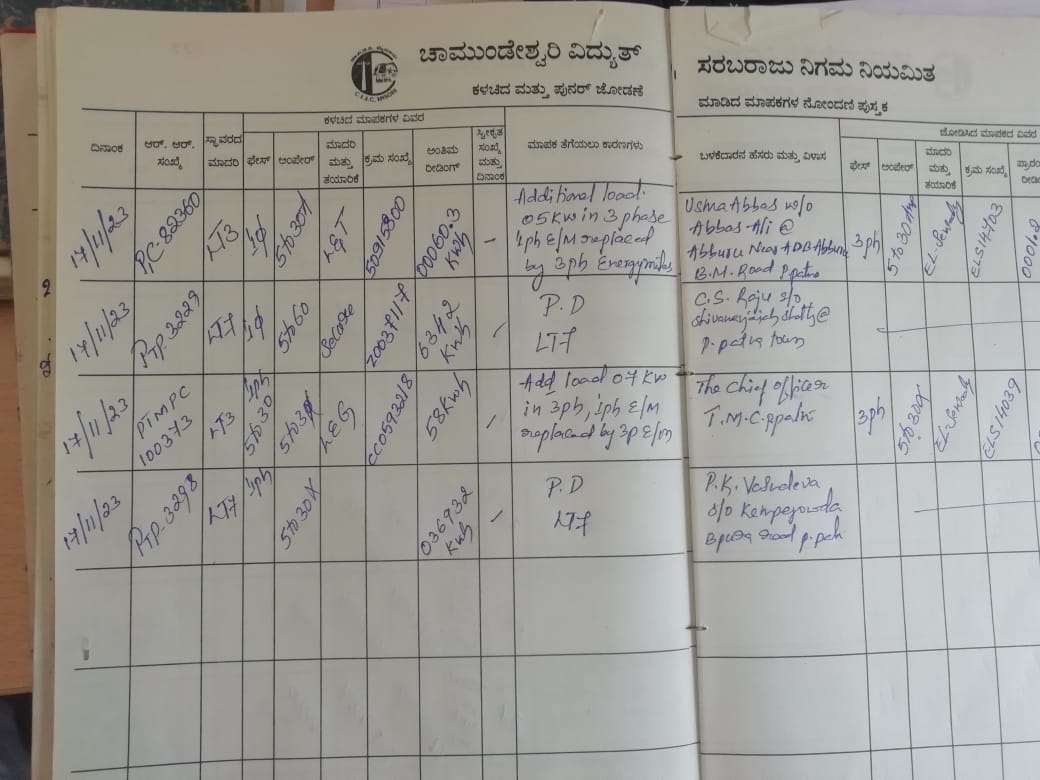 ಚಾಮುಂಡೇಶ್ವರಿ ವಿದ್ಯುತ್ ಸರಬರಾಜು ನಿಗಮ ನಿಯಮಿತ
ಕಳಚಿದ ಮತ್ತು ಪುನರ್ ಜೋಡಣೆ ಮಾಡಿದ ಮಾಪಕಗಳ ನೋಂದಣಿ ಪುಸ್ತಕ
ಕಳಚಿದ ಮಾಪಕಗಳ ವಿವರ
ಜೋಡಿಸಿದ ಮಾಪಕದ ವಿವರ
ದಿನಾಂಕ
ಆರ್. ಆರ್. ಸಂಖ್ಯೆ
ಸ್ಥಾವರದ ಮಾದರಿ
ಫೇಸ್
ಆಂಪೇರ್
ಮಾದರಿ ಮತ್ತು ತಯಾರಿಕೆ
ಕ್ರಮ ಸಂಖ್ಯೆ
ಅಂತಿಮ ರೀಡಿಂಗ್
ಸ್ವೀಕೃತ ಸಂಖ್ಯೆ ಮತ್ತು ದಿನಾಂಕ
ಮಾಪಕ ತೆಗೆಯಲು ಕಾರಣಗಳು
ಬಳಕೆದಾರನ ಹೆಸರು ಮತ್ತು ವಿಳಾಸ
ಫೇಸ್
ಆಂಪೇರ್
ಮಾದರಿ ಮತ್ತು ತಯಾರಿಕೆ
ಕ್ರಮ ಸಂಖ್ಯೆ
17/11/23
PC-82360
LT3
1φ
L&T
50915800
00060.3 Kwh
Additional load
05Kw in 3 phase
1ph E/M replaced
by 3ph
Usma Abbas w/o
Abbas Ali @
B.M. Road P.patna
3ph
ELS14703
0001.2
17/11/23
PTP-3229
LT7
1φ
5to60
Secure
6342 Kwh
P.D
LT7
C.S. Raju s/o
@
P.patna town
17/11/23
PTMPC 100373
LT3
1ph
5to30
58Kwh
Add load 07 Kw
in 3ph, 1ph E/M
replaced by 3P E/m
The Chief officer
T.M.C.
3ph
ELS14039
17/11/23
PTP-3298
LT7
1ph
036932 Kwh
P.D
LT7
P.K. Vasudeva
s/o Kempegowda